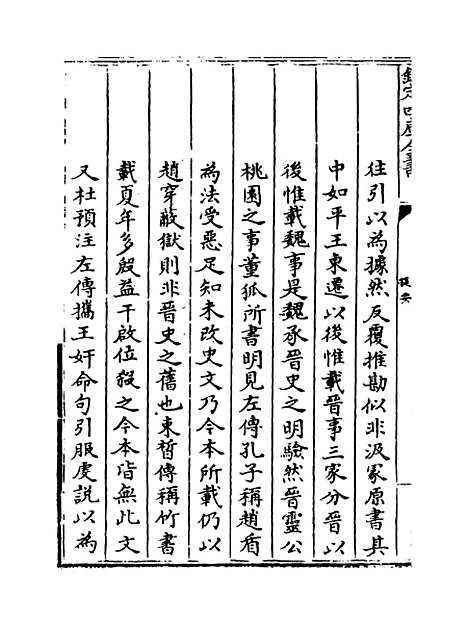 欽定四庫全書
提要
往引以為據然反覆推勘似非汲冢原書其
中如平王東遷以後惟載晉事三家分晉以
後惟載魏事是魏承晉史之明驗然晉靈公
桃園之事董狐所書明見左傳孔子稱趙盾
為法受惡足知未改史文乃今本所載仍以
趙穿蔽獄則非晉史之舊也束晳傳稱竹書
載夏年多殷益干啟位啟殺之今本皆無此文
又杜預注左傳攜王奸命句引服虔說以為